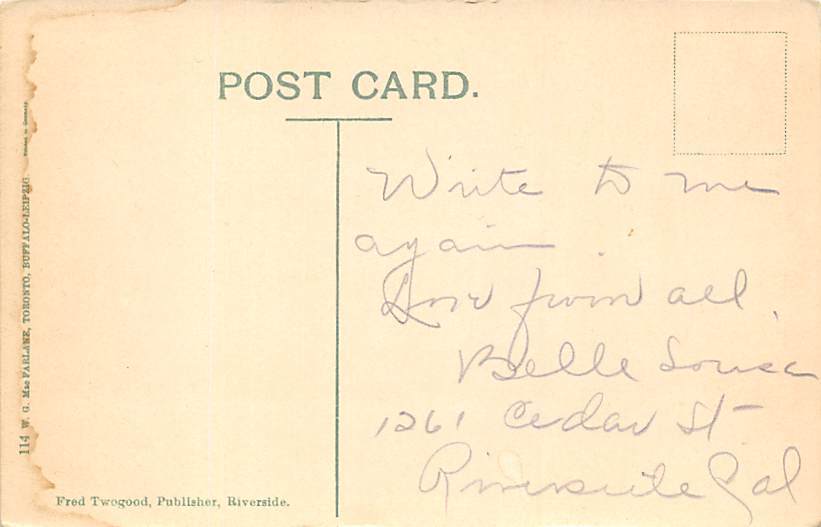 POST CARD.
Write to me
again.
Love from all.
Belle Sousa
1261 Cedar St
Riverside Cal
114 W. G. MacFARLANE, TORONTO, BUFFALO-LEIPZIG.
Printed in Germany
Fred Twogood, Publisher, Riverside.